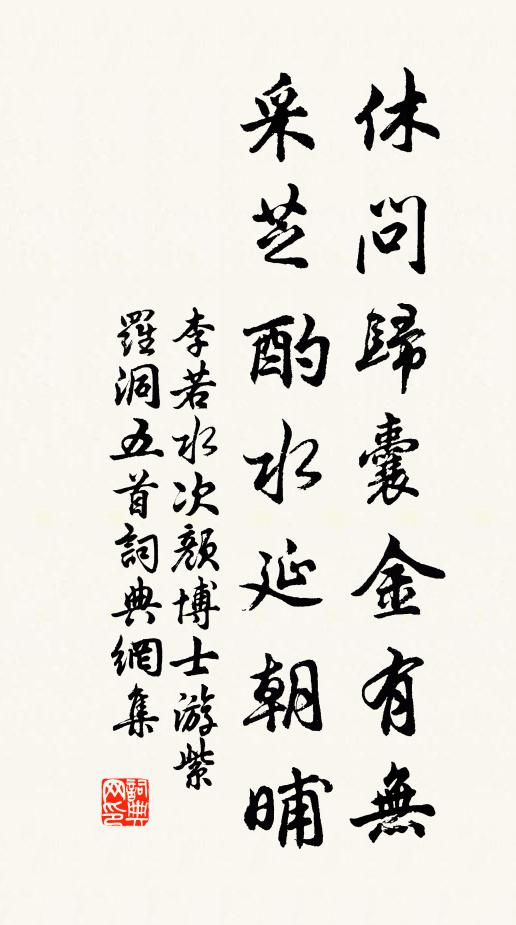 休問歸囊金有無
采芝酌水延朝晡
李若水次顏博士游紫
羅洞五首詞典網集
詞典
网印